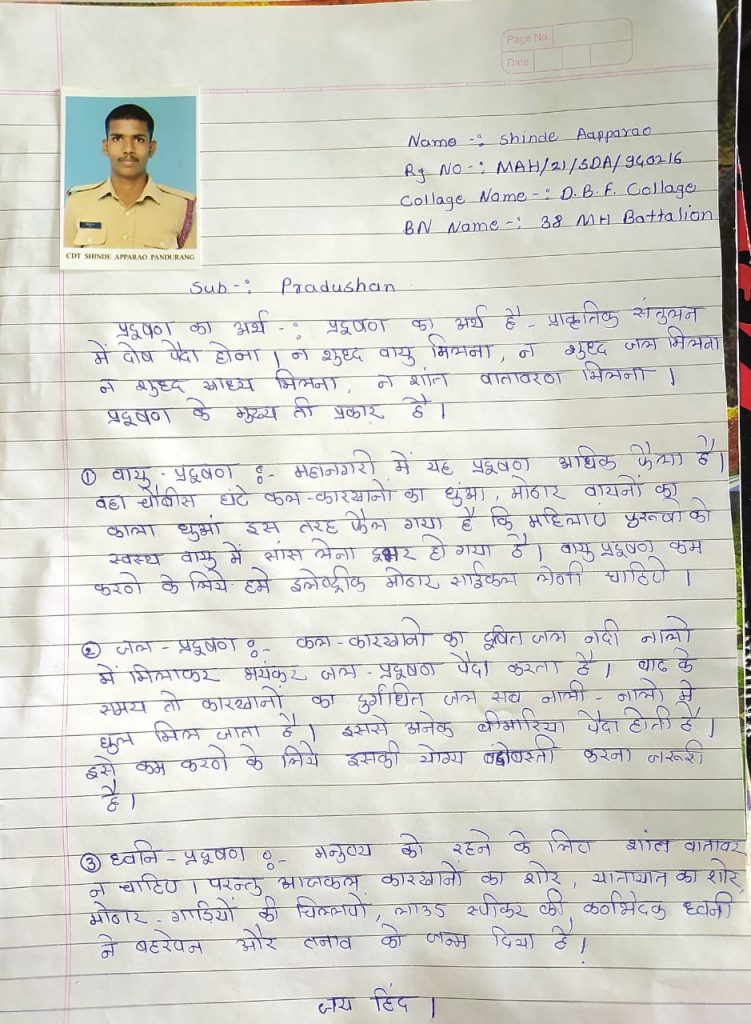 Page No.
Date
Name -: Shinde Aapparao
Rg No -: MAH/21/SDA/940216
Collage Name -: D.B.F. Collage
BN Name -: 38 MH Battalion
CDT SHINDE APPARAO PANDURANG
Sub -: Pradushan
प्रदूषण का अर्थ -: प्रदूषण का अर्थ है - प्राकृतिक संतुलन
में दोष पैदा होना। न शुध्द वायु मिलना, न शुध्द जल मिलना
न शुध्द खाध्य मिलना, न शांत वातावरण मिलना।
प्रदूषण के मुख्य ती प्रकार है।
① वायु - प्रदूषण :- महानगरो में यह प्रदूषण अधिक फैला है।
वहा चौबीस घंटे कल-कारखानों का धुंआ, मोठार वायनों का
काला धुआं इस तरह फैल गया है कि महिलाएं पुरूषो को
स्वस्थ वायु में सांस लेना दूभर हो गया है। वायु प्रदूषण कम
करणे के लिये हमे इलेक्ट्रीक मोठार साईकल लेनी चाहिए।
② जल - प्रदूषण :- कल-कारखानो का दूषित जल नदी नालो
में मिलाकर भयंकर जल-प्रदूषण पैदा करता है। बाढ के
समय तो कारखानों का दुर्गंधित जल सब नाली - नालो मे
घुल मिल जाता है। इससे अनेक बीमारिया पैदा होती है।
इसे कम करणे के लिये इसकी योग्य बंदोबस्ती करना जरूरी
है।
③ ध्वनि - प्रदूषण :- मनुष्य को रहने के लिए शांत वातावर
न चाहिए। परन्तु आजकल कारखानों का शोर, यातायात का शोर,
मोठार-गाडियों की चिल्लपो, लाउड स्पीकर की कर्णभेदक ध्वनी
ने बहरेपन और तनाव को जन्म दिया है।
जय हिंद।